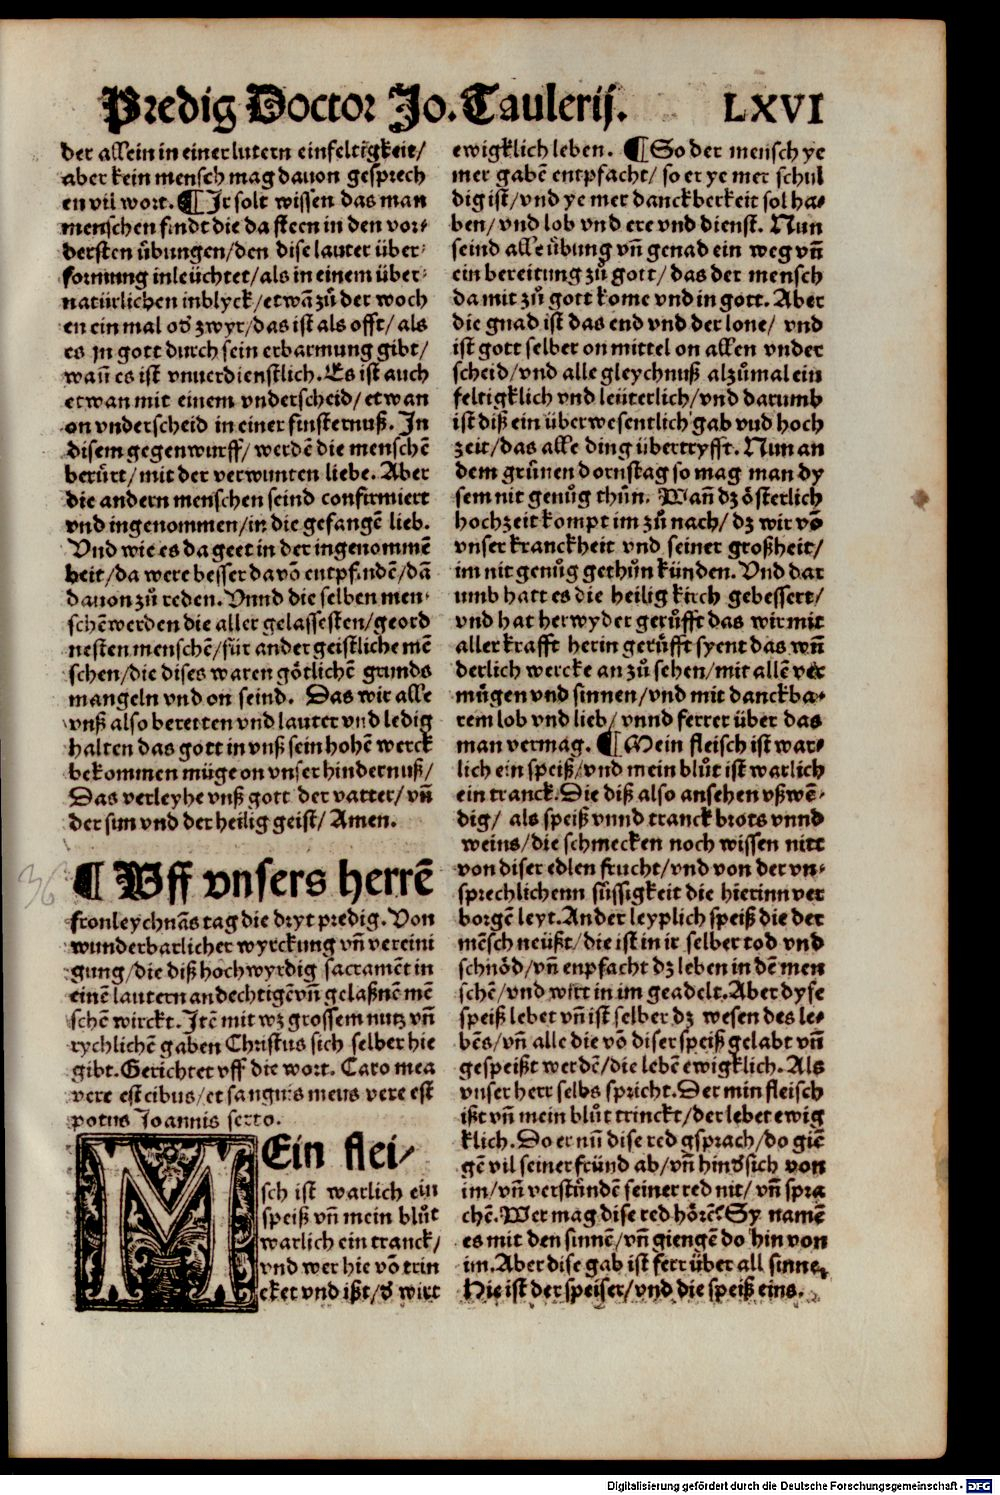 Predig Doctor Jo. Taulerij. LXVI
der allein in einer lutern einfeltigkeit/
aber kein mensch mag dauon gesprech
en vil wort. ¶ Ir solt wissen das man
menschen findt die da steen in den vor-
dersten übungen/den dise lauter über-
formung inleüchtet/als in einem über-
natürlichen inblyck/etwã zů der woch
en ein mal oď zwyr/das ist als offt/als
es jn gott durch sein erbarmung gibt/
wañ es ist vnuerdienstlich. Es ist auch
etwan mit einem vnderscheid/etwan
on vnderscheid in einer finsternuß. In
disem gegenwurff/ werdẽ die menschẽ
berürt/mit der verwunten liebe. Aber
die andern menschen seind confirmiert
vnd ingenommen/in die gefangẽ lieb.
Vnd wie es da geet in der ingenommẽ
heit/da were besser da võ entpfindẽ/dã
dauon zů reden. Vnnd die selben men-
schẽ werden die aller gelassesten/geord
nesten menschẽ/für ander geistliche mẽ
schen/die dises waren götlichẽ grunds
mangeln vnd on seind. Das wir alle
vnß also beretten vnd lauter vnd ledig
halten das gott in vnß sein hohẽ werck
bekommen müge on vnser hindernuß/
Das verleyhe vnß gott der vatter/vñ
der sun vnd der heilig geist/ Amen.
36
¶ Vff vnsers herrẽ
fronleychnãs tag die dryt predig. Von
wunderbarlicher wyrckung vñ vereini
gung/die diß hochwyrdig sacramẽt in
einẽ lautern andechtigẽ vñ gelaßnẽ mẽ
schẽ wirckt. Itẽ mit wz grossem nutz vñ
rychlichẽ gaben Christus sich selber hie
gibt. Gerichtet vff die wort. Caro mea
vere est cibus/et sanguis meus vere est
potus Joannis sexto.
MEin flei/
sch ist warlich ein
speiß vñ mein blůt
warlich ein tranck/
vnd wer hie võ trin
cket vnd ißt/ď wirt
ewigklich leben. ¶ So der mensch ye
mer gabẽ entpfacht/ so er ye mer schul
dig ist/vnd ye mer danckberkeit sol ha-
ben/ vnd lob vnd ere vnd dienst. Nun
seind alle übung vñ genad ein weg vñ
ein bereitung zů gott/das der mensch
da mit zů gott kome vnd in gott. Aber
die gnad ist das end vnd der lone/ vnd
ist gott selber on mittel on allen vnder
scheid/vnd alle gleychnuß alzůmal ein
feltigklich vnd leüterlich/vnd darumb
ist diß ein überwesentlich gab vnd hoch
zeit/das alle ding übertryfft. Nun an
dem grünen dornstag so mag man dy
sem nit genůg thůn. Wañ dz österlich
hochzeit kompt im zů nach/ dz wir võ
vnser kranckheit vnd seiner großheit/
im nit genůg gethůn künden. Vnd dar
umb hatt es die heilig kirch gebessert/
vnd hat herwyder gerüfft das wir mit
aller krafft herin gerüfft syent das wũ
derlich wercke an zů sehen/mit allẽ ver
mügen vnd sinnen/vnd mit danckba-
rem lob vnd lieb/vnnd ferrer über das
man vermag. ¶ Mein fleisch ist war-
lich ein speiß/vnd mein blůt ist warlich
ein tranck. Die diß also ansehen vßwẽ-
dig/ als speiß vnnd tranck brots vnnd
weins/die schmecken noch wissen nitt
von diser edlen frucht/vnd von der vn-
sprechlichenn süssigkeit die hierinn ver
borgẽ leyt. Ander leyplich speiß die der
mẽsch neüßt/die ist in ir selber tod vnd
schnöd/vñ enpfacht dz leben in dẽ men
schẽ/vnd wirt in im geadelt. Aber dyse
speiß lebet vñ ist selber dz wesen des le-
bẽs/vñ alle die võ diser speiß gelabt vñ
gespeißt werdẽ/die lebẽ ewigklich. Als
vnser herr selbs spricht. Der min fleisch
ißt vñ mein blůt trinckt/der lebet ewig
klich. Do er nũ dise red gsprach/do giẽ
gẽ vil seiner fründ ab/vñ hinď sich von
im/vñ verstůndẽ seiner red nit/ vñ spra
chẽ. Wer mag dise red hörẽ? Sy namẽ
es mit den sinnẽ/vñ giengẽ do hin von
im. Aber dise gab ist ferr über all sinne.
Hie ist der speiser/vnd die speiß eins.
Digitalisierung gefördert durch die Deutsche Forschungsgemeinschaft - DFG